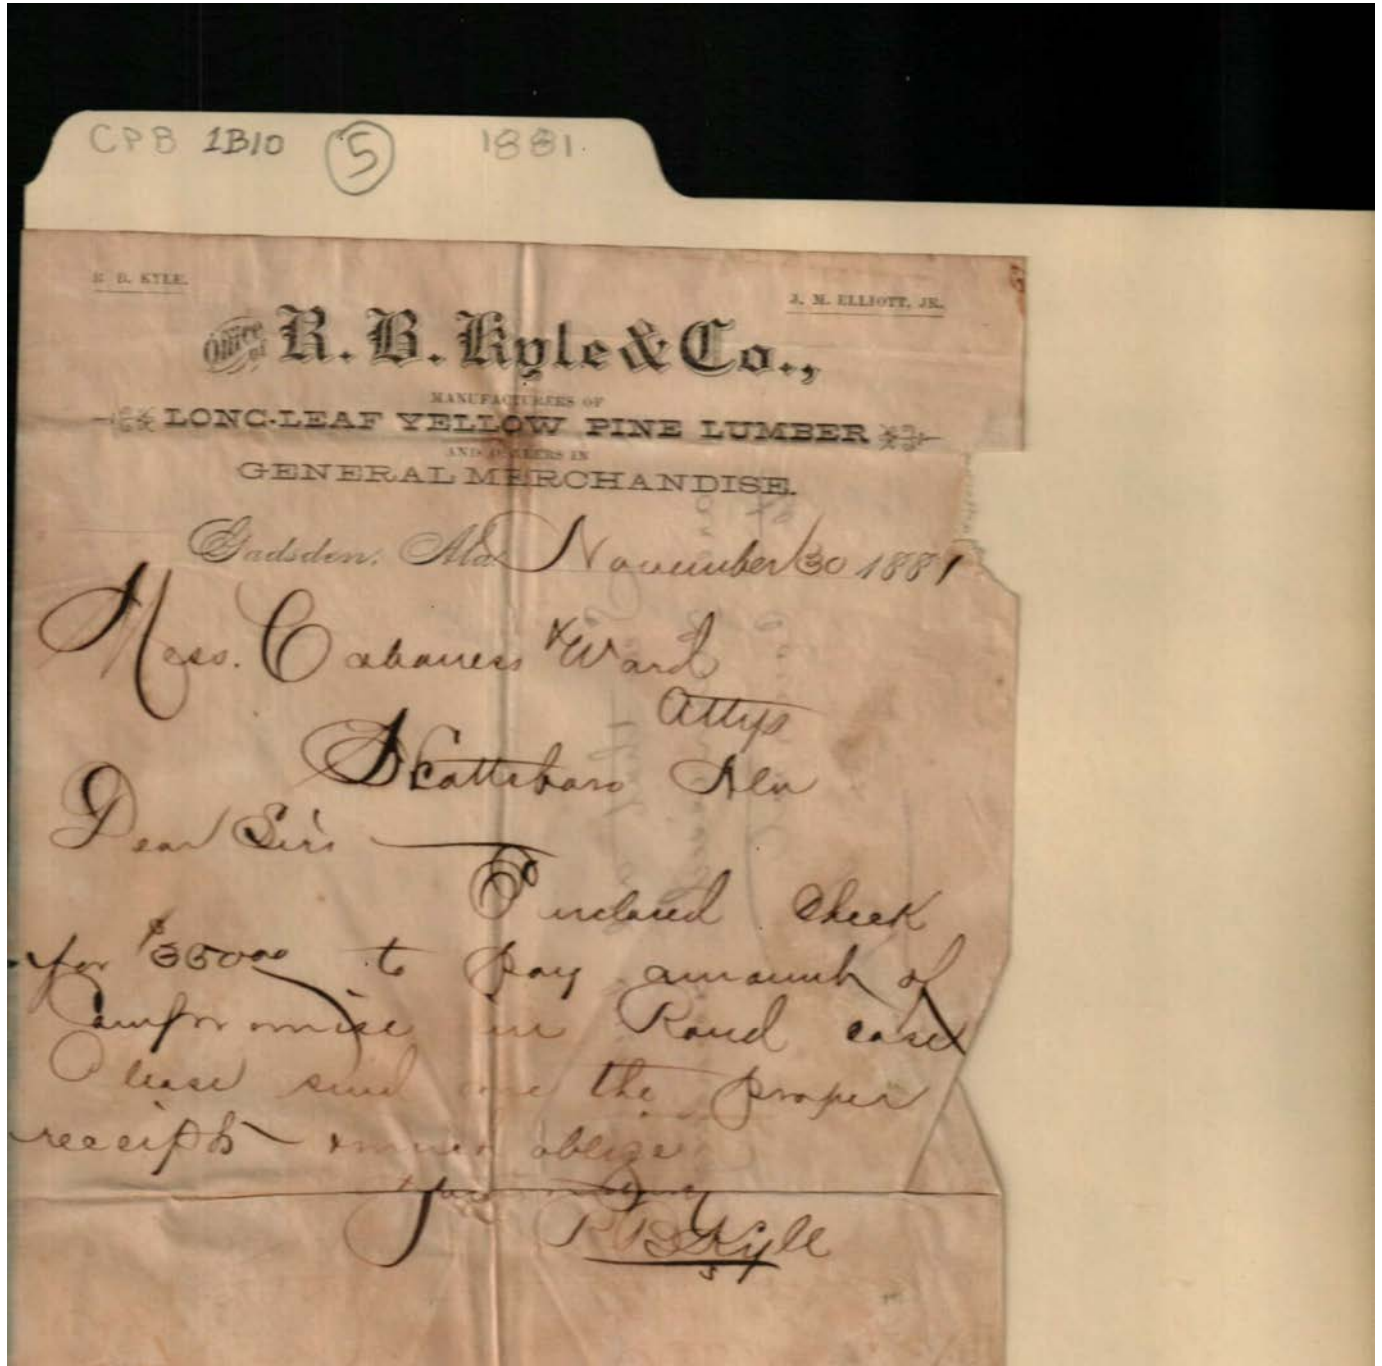 CPB 1B10 5 1881.
R. B. KYLE.
J. M. ELLIOTT, JR.
Office of R. B. Kyle & Co.,
MANUFACTURERS OF
LONG-LEAF YELLOW PINE LUMBER
AND DEALERS IN
GENERAL MERCHANDISE.
Gadsden, Ala November 30 1881
Mess. Cabaness & Ward
Attys
Scottsboro Ala
Dear Sirs
Inclosed check
for $350 00 to pay amount of
compromise in Rand case
Please send me the proper
receipts oblige
R B Kyle